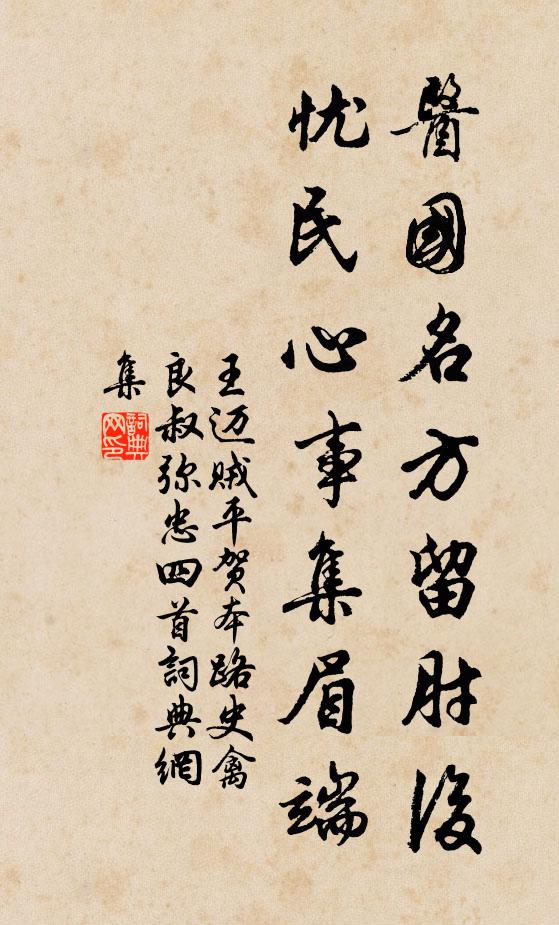 醫國名方留肘後
忧民心事集眉端
王迈贼平贺本路史禽
良叔弥忠四首詞典網
集
詞典
网印